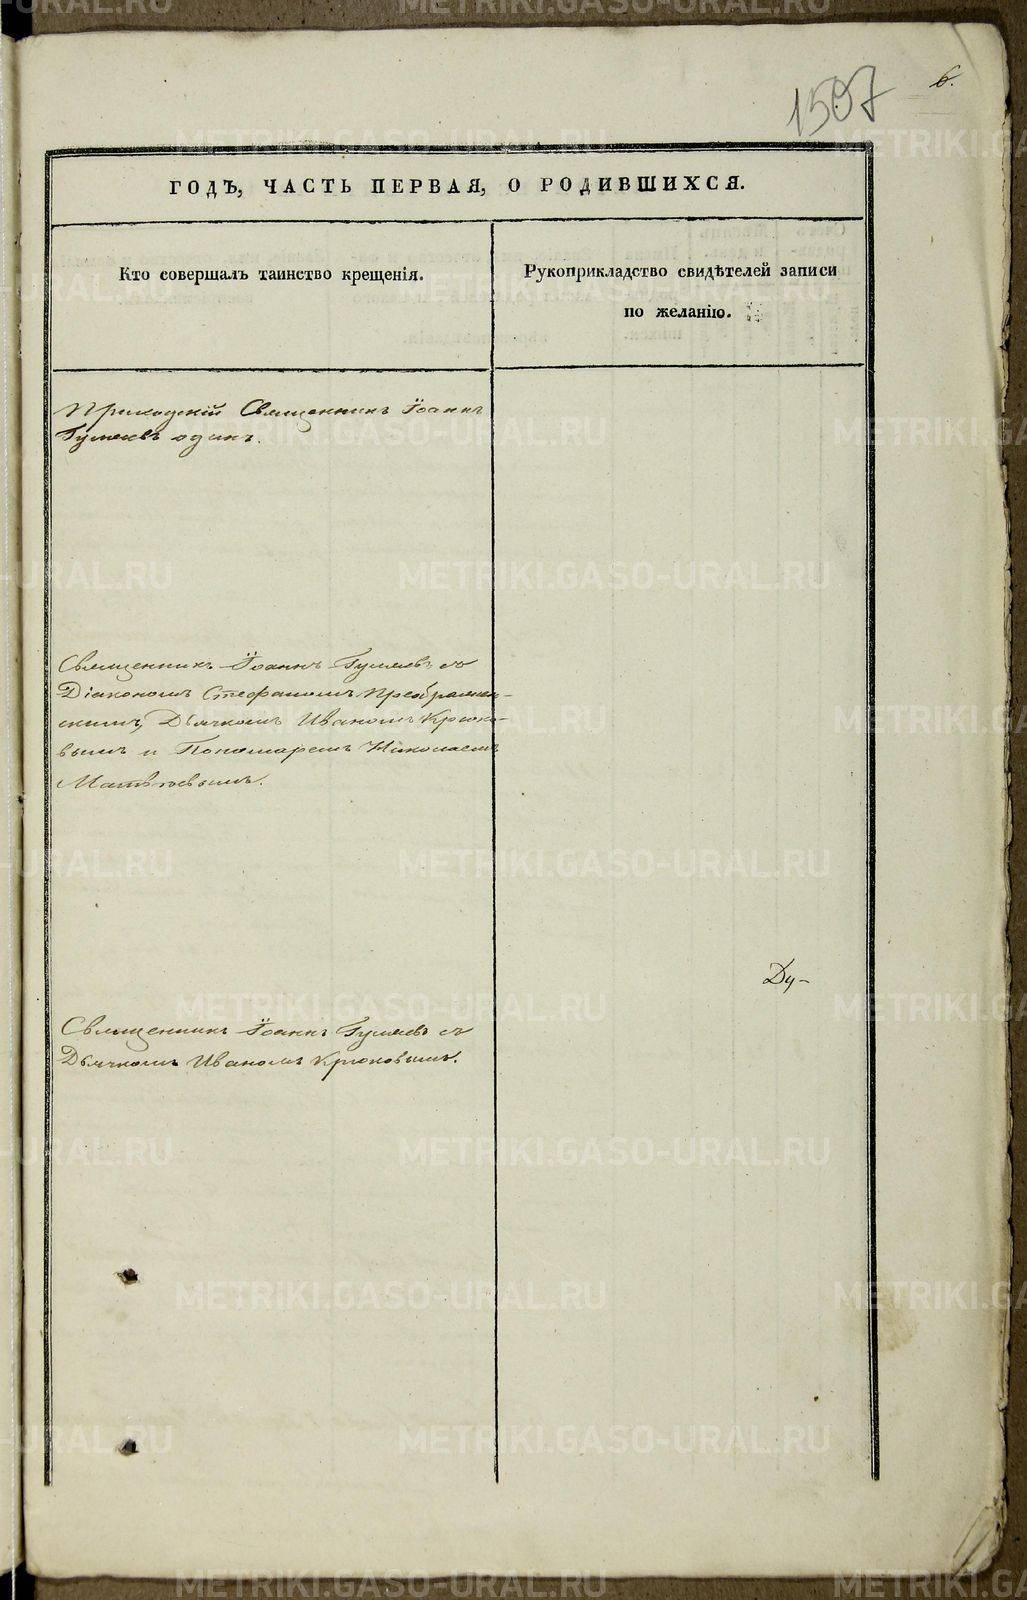 1507
6.
ГОДЪ, ЧАСТЬ ПЕРВАЯ, О РОДИВШИХСЯ.
Кто совершалъ таинство крещенія.
Рукоприкладство свидѣтелей записи
по желанію.
Приходскій Священникъ Іоаннъ
Гуляевъ одинъ.
Священникъ Іоаннъ Гуляевъ съ
Діакономъ Стефаномъ Преображен-
скимъ, Дьячкомъ Иваномъ Крюко-
вымъ и Пономаремъ Николаемъ
Матвѣевымъ.
Ду-
Священникъ Іоаннъ Гуляевъ съ
Дьячкомъ Иваномъ Крюковымъ.
METRIKI.GASO-URAL.RU